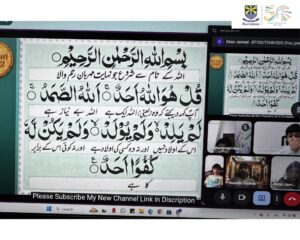 بِسْمِ اللهِ الرَّحْمٰنِ الرَّحِيْمِ
اللہ کے نام سے شروع جو نہایت مہربان رحم والا
قُلْ هُوَ اللهُ اَحَدٌ ۚ اَللهُ الصَّمَدُ ۚ
آپ کہہ دیجئے کہ وہ (یعنی) اللہ ایک ہے اللہ بے نیاز ہے
لَمْ يَلِدْ وَلَمْ يُوْلَدْ وَلَمْ يَكُنْ لَّهٗ
اس کے اولاد نہیں اور نہ وہ کسی کی اولاد ہے اور نہ کوئی اس کے برابر
كُفُوًا اَحَدٌ
کا ہے
Please Subscribe My New Channel Link in Dicription